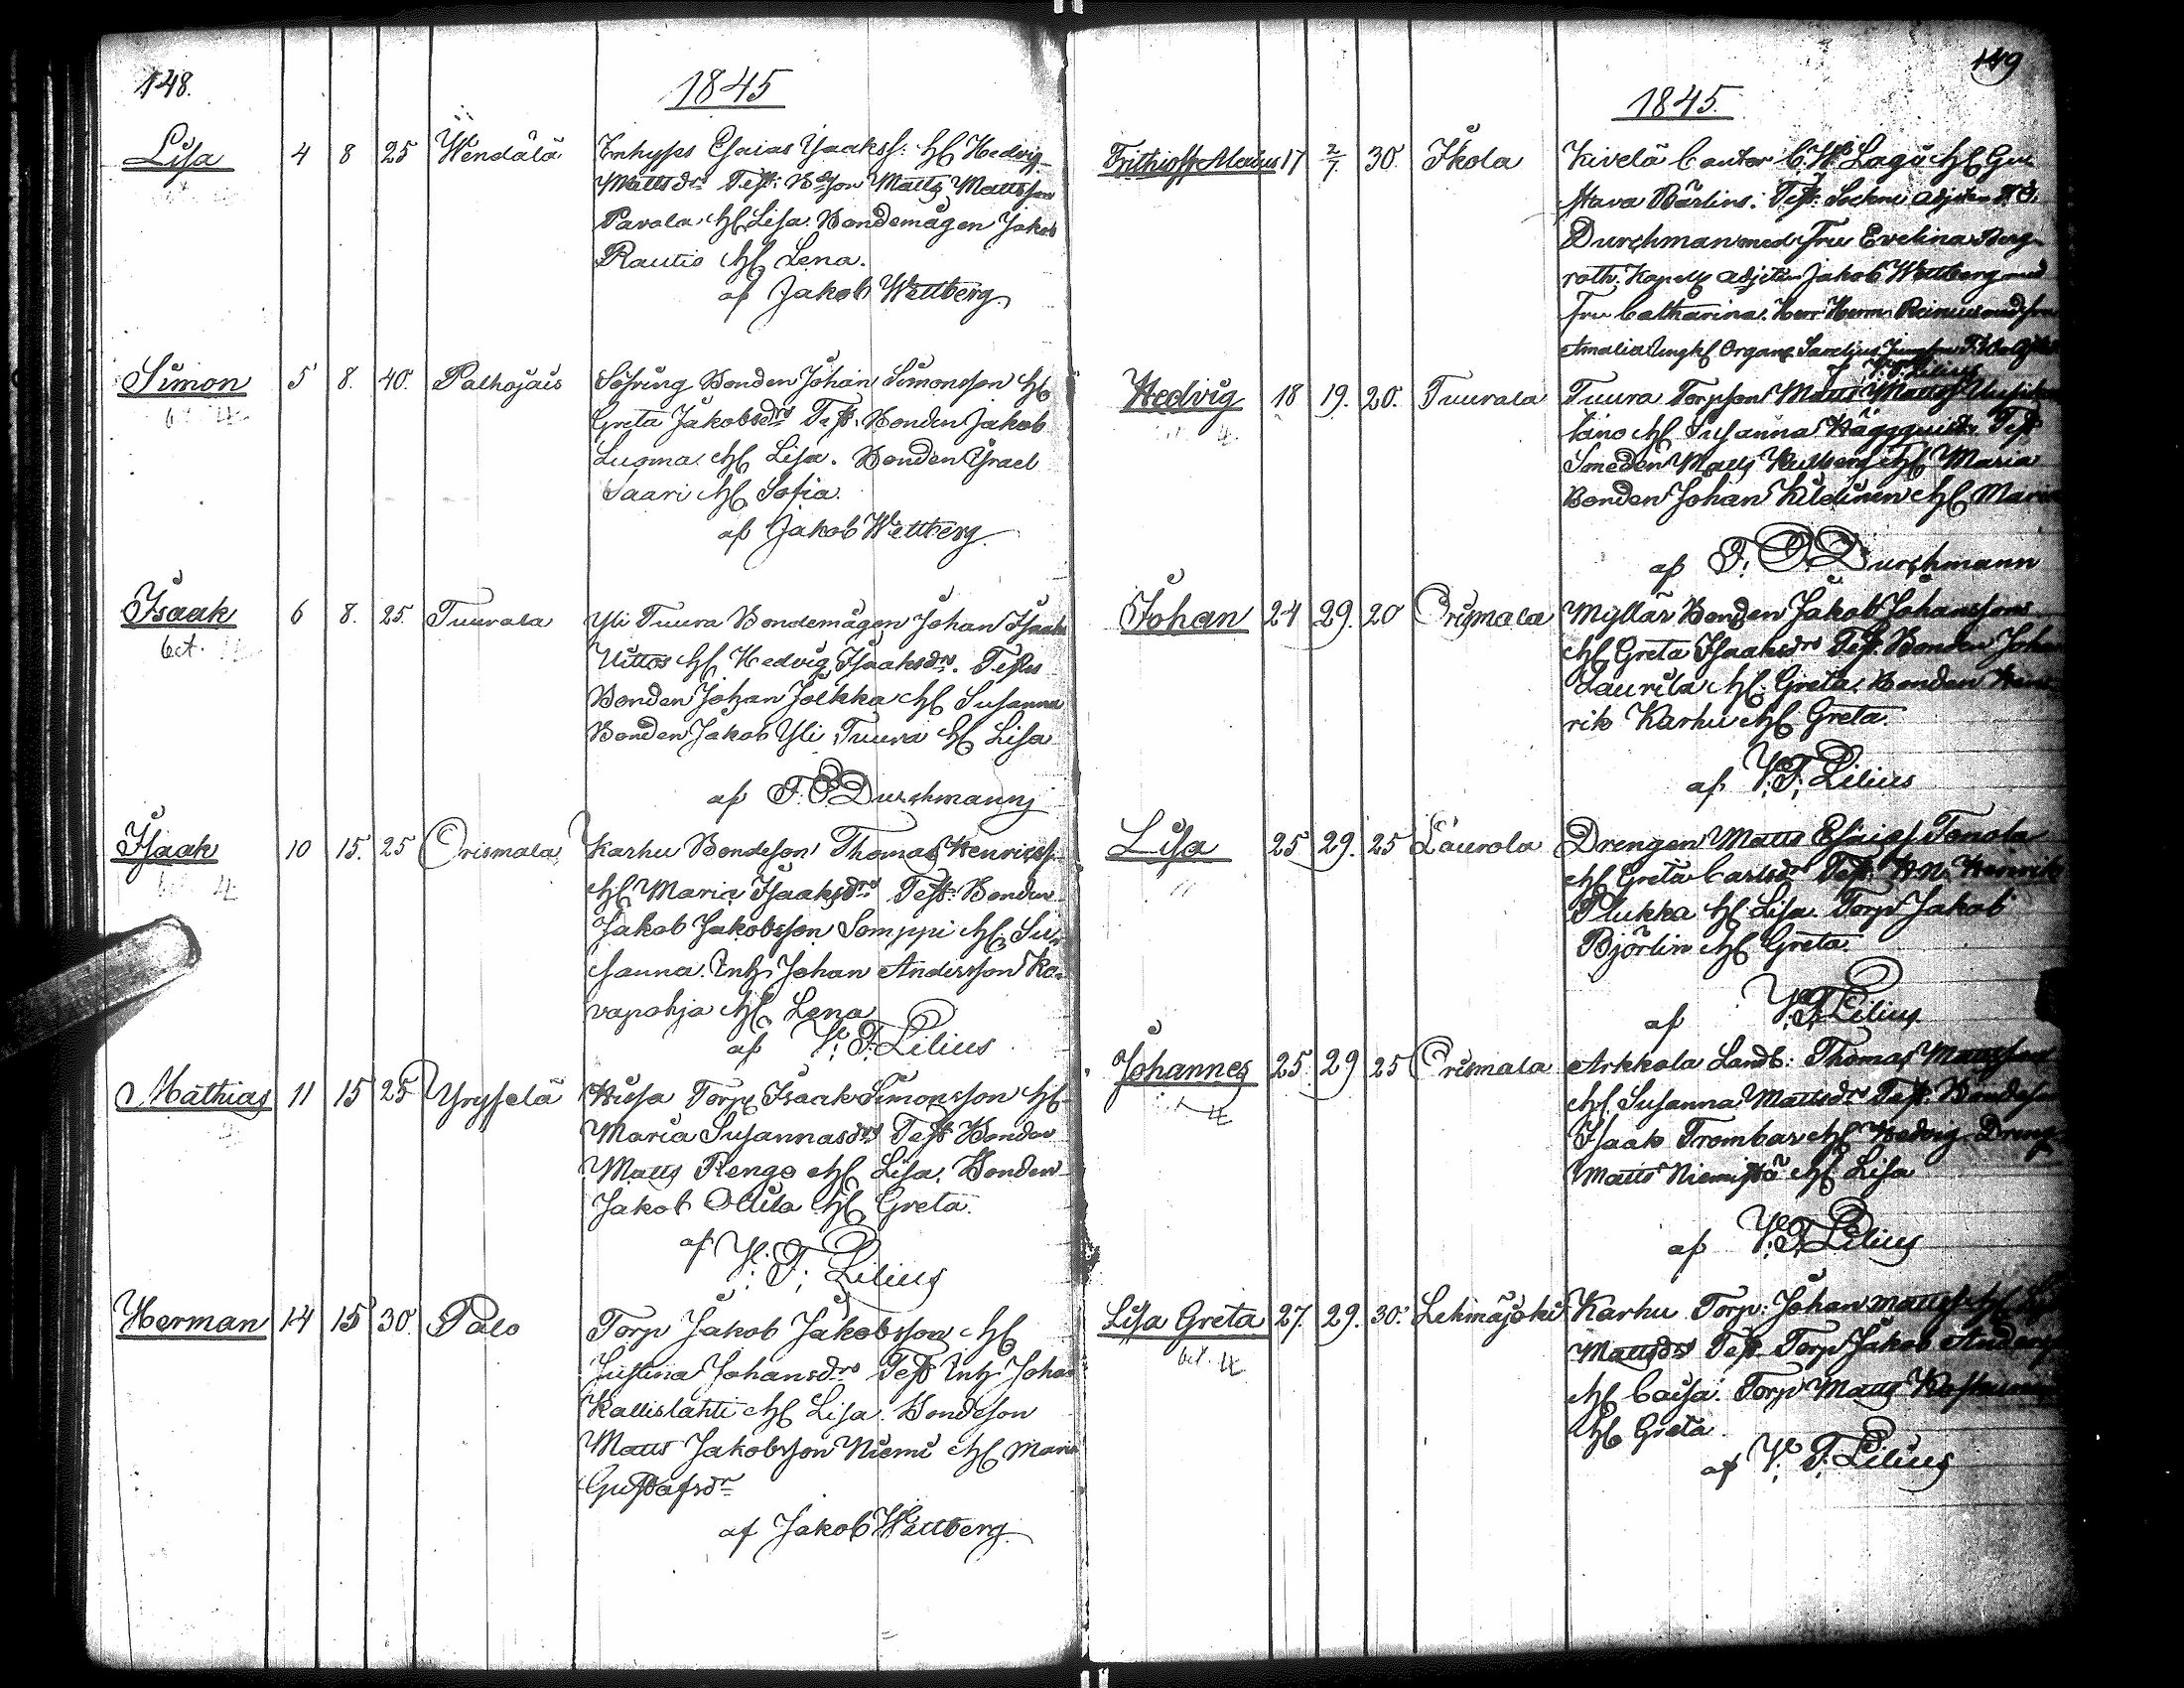 148.
1845
Lisa 4 8 25 Wendälä Inhyses Esaias Isaakss. H. Hedvig
Mattsdr. Test: Bdson Matts Mattsson
Pavola H. Lisa. Bondemågen Jakob
Rautio H. Lena.
af Jakob Wettberg.
Simon 5 8. 40. Palhojais Söhring Bonden Johan Simonsson H.
Greta Jakobsdr. Test. Bonden Jakob
Luoma H. Lisa. Bonden Israel
Saari H. Sofia.
af Jakob Wettberg.
Isaak 6 8. 25. Tuurala Yli Tuura Bondemågen Johan Isaaks
bet.
Uitto H. Hedvig Isaaksdr. Test
Bonden Johan Jolkka H. Susanna
Bonden Jakob Yli Tuura H. Lisa
af F. O. Durchmann
Isaak 10 15. 25 Orismala Karhu Bondeson Thomas Henrikss.
H. Maria Isaaksdr. Test: Bonden
Jakob Jakobsson Somppi H. Su-
sanna. Inh. Johan Andersson Ko-
vapohja H. Lena
af V. F. Lilius
Mathias 11 15 25 Yryselä Wisa Torp. Isaak Simonsson H.
Maria Susannasdr. Test Bonden
Matts Rengo H. Lisa. Bonden
Jakob Ollila H. Greta.
af V. F. Lilius
Herman 14 15 30. Palo Torp Jakob Jakobsson H.
Justina Johansdr. Test Inh. Johan
Kallislahti H. Lisa. Bondeson
Matts Jakobsson Niemi H. Maria
Gustafsdr.
af Jakob Wettberg.
149
1845.
Frithioff 17 2/7. 30. Ikola Kivelä Cantor C. W. Lagu H. Gu-
stava Bärlins. Test: Sockne Adjten F. O.
Durchman med Fru Evelina Berg-
roth. Kapells Adjten Jakob Wettberg med
Fru Catharina. Herr Herm. med fru
Amalia
V. F. Lilius
Hedvig 18 19. 20. Tuurala Tuura Torpson Matts Mattss
H. Susanna Häggquist. Test
Smeden Matts Kullberg H. Maria
Bonden Johan Kildinen H. Maria
af F. O. Durchmann
Johan 24 29. 20 Orismala Myllär Bonden Jakob Johanssons
H. Greta Isaaksdr. Test. Bonden Johan
Laurila H. Greta. Bonden Hen-
rik Karhu H. Greta.
af V. F. Lilius
Lisa 25 29. 25 Laurola Drengen Matts Esaias Tonola
H. Greta Carlsdr. Test. Bn. Henrik
Plukka H. Lisa. Torp Jakob
Björlin H. Greta.
af V. F. Lilius.
Johannes 25. 29 25 Orismala Arkkola Landb: Thomas Mattsson
H. Susanna Mattsdr. Test. Bondeson
Isaak Trombar H. Hedvig. Dreng
Matts Niemistö H. Lisa
af V. F. Lilius
Lisa Greta 27. 29. 30. Lehmäjoki Karhu Torp: Johan Mattss. H.
bet.
Mattsdr. Test. Torp Jakob Anders
H. Caisa. Torp Matts
H. Greta.
af V. F. Lilius